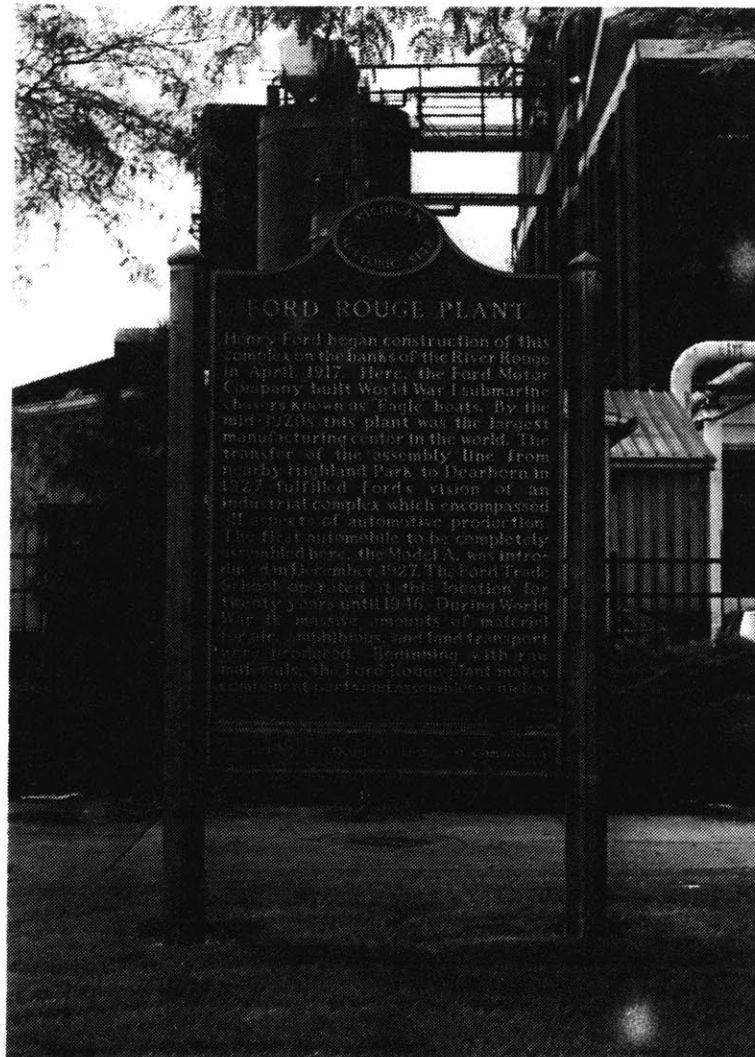 MICHIGAN
HISTORIC SITE
FORD ROUGE PLANT
Henry Ford began construction of this
complex on the banks of the River Rouge
in April, 1917. Here, the Ford Motor
Company built World War I submarine
chasers known as "Eagle" boats. By the
mid-1920s this plant was the largest
manufacturing center in the world. The
transfer of the assembly line from
nearby Highland Park to Dearborn in
1927 fulfilled Ford's vision of an
industrial complex which encompassed
all aspects of automotive production.
The first automobile to be completely
assembled here, the Model A, was intro-
duced in December, 1927. The Ford Trade
School operated at this location for
twenty years until 1946. During World
War II, massive amounts of material
for air, amphibious, and land transport
were produced. Beginning with raw
materials, the Ford Rouge plant makes
component parts and assembles vehicles.